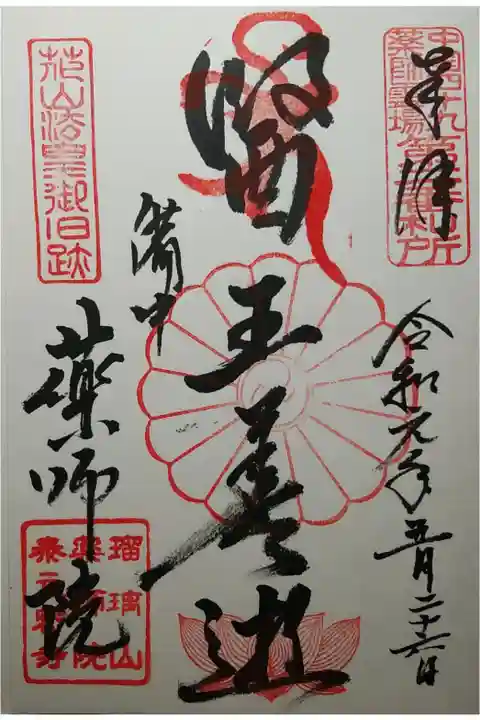 奉拝
令和元年五月二十六日
醫王善逝
備中
薬師院
花山法皇御旧跡
中国四十九
薬師霊場
瑠璃山
薬師院
泰立寺